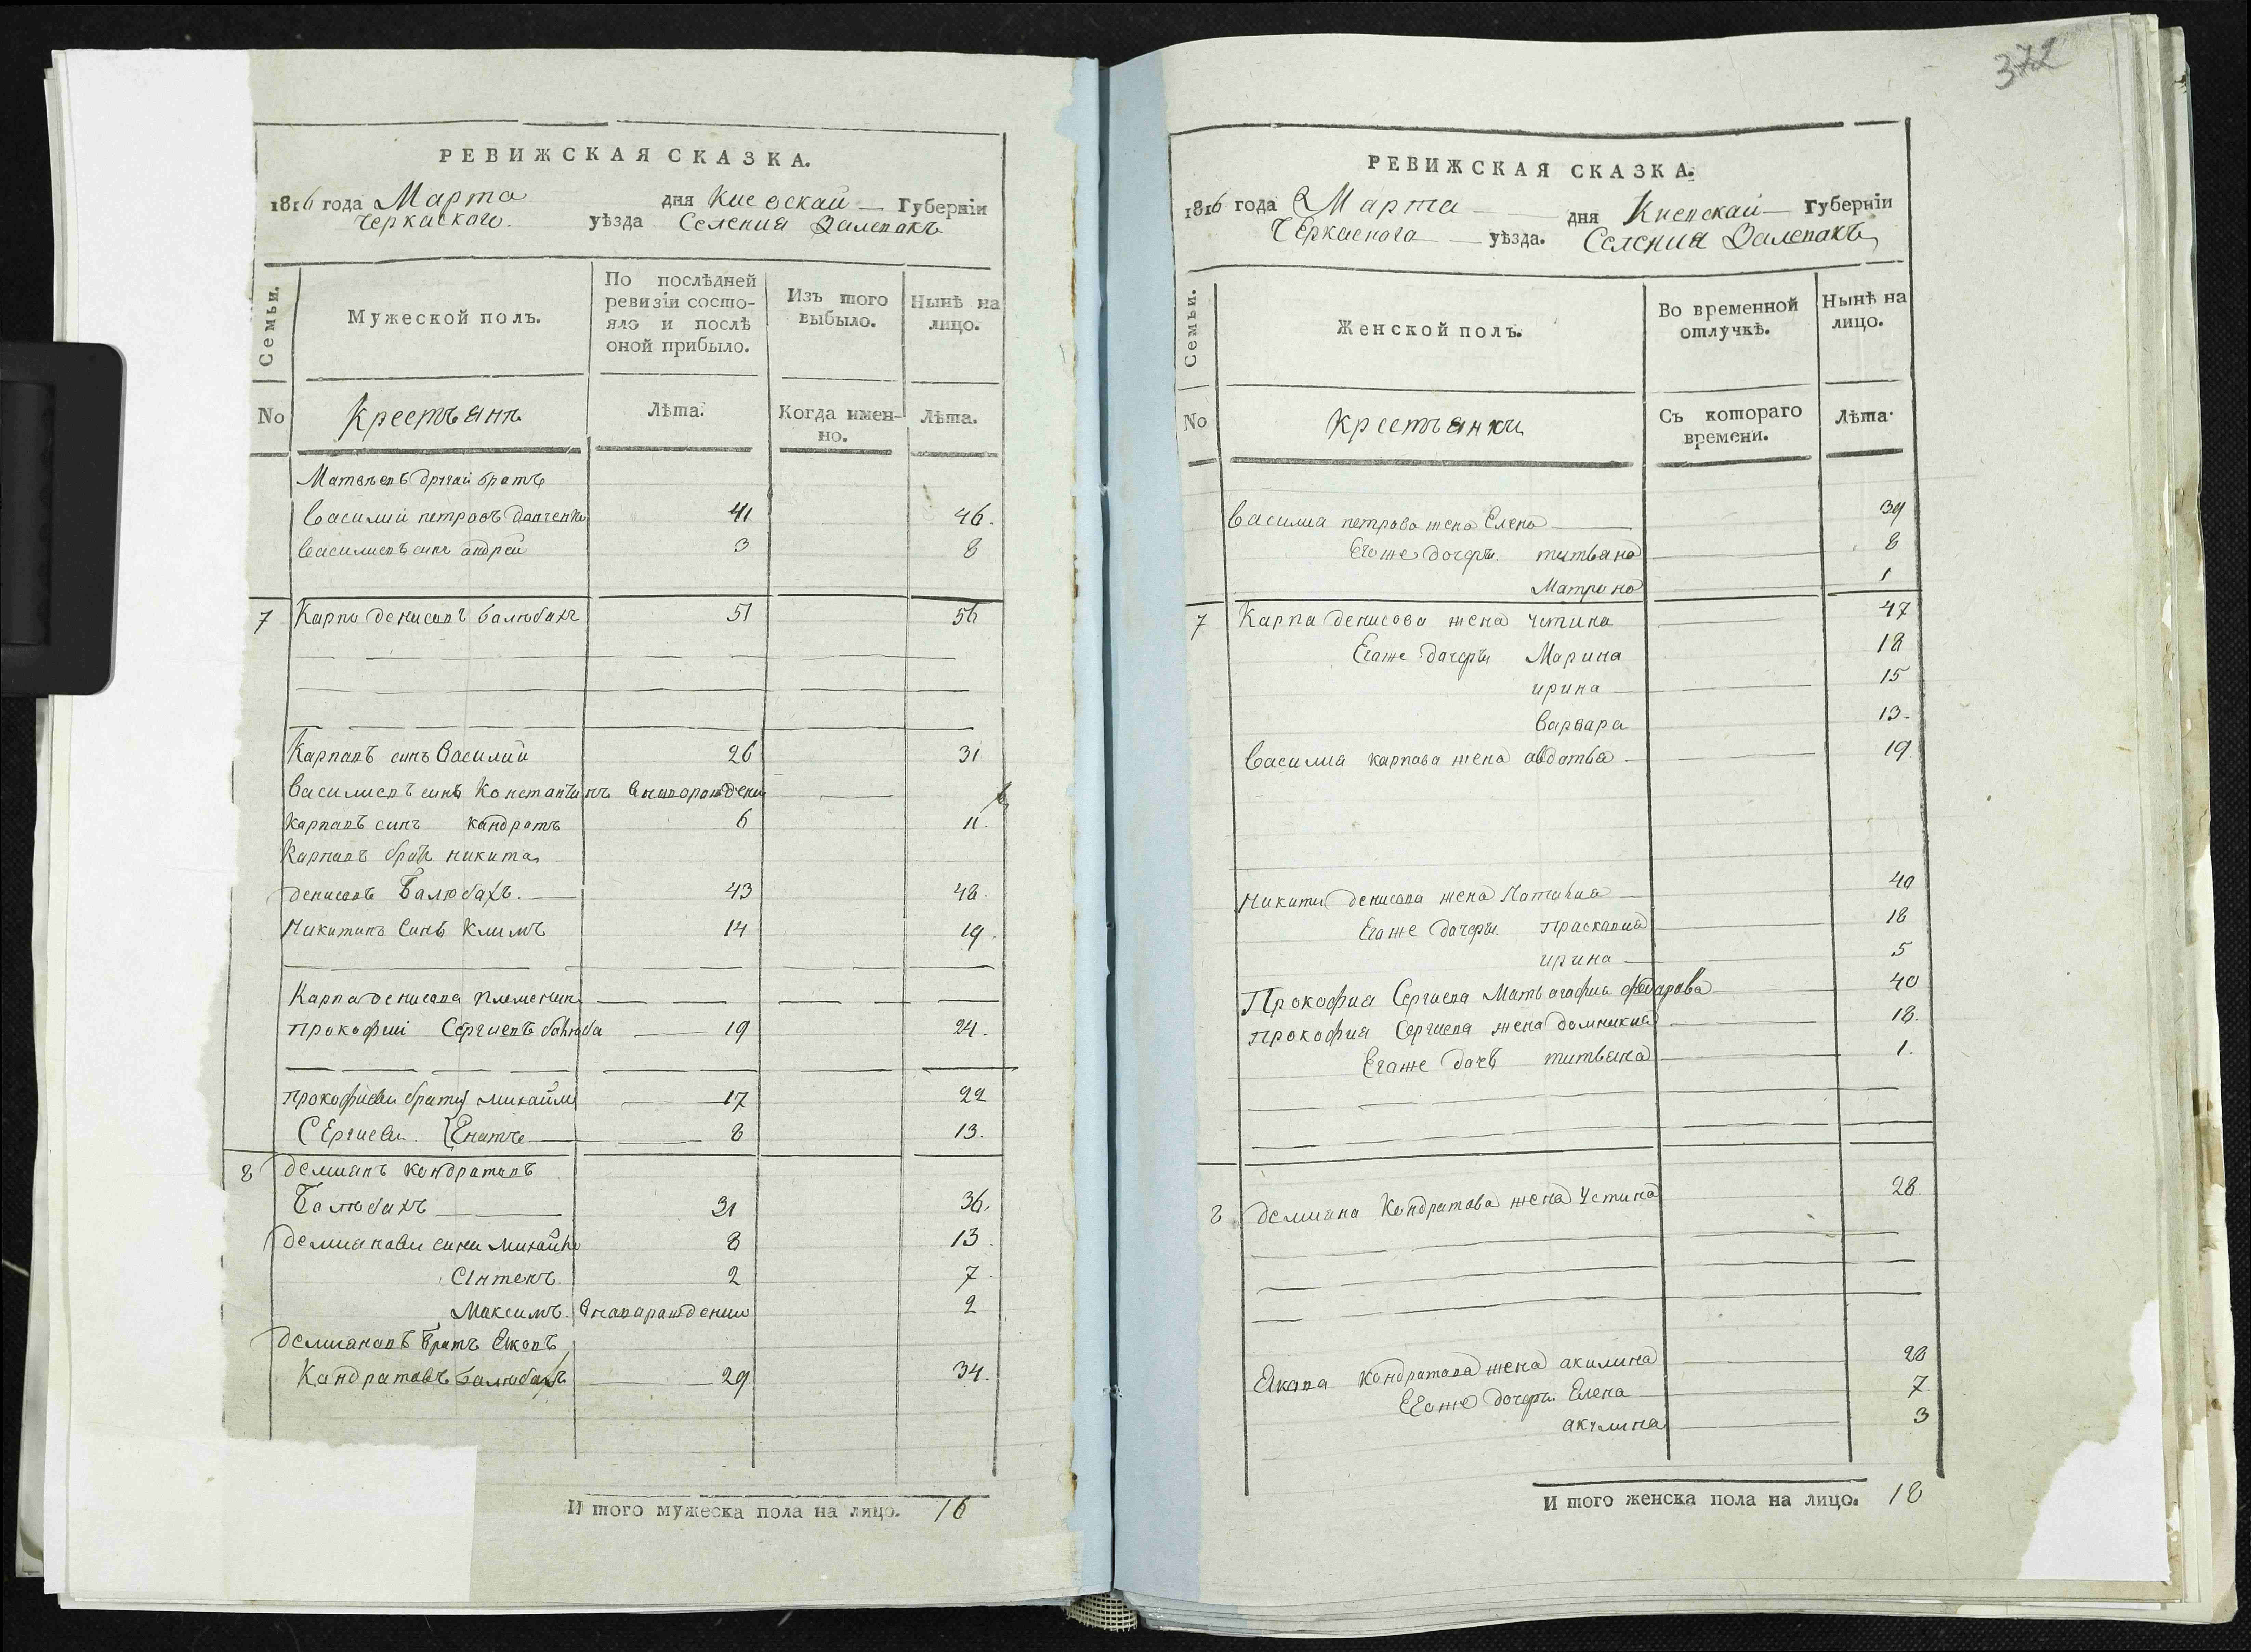 372
РЕВИЖСКАЯ СКАЗКА.
1816 года Марта дня Киевскай Губерніи
Черкаского уѣзда Селения Валепакъ
Семьи.
Мужеской полъ.
По послѣдней
ревизіи состо-
яло и послѣ
оной прибыло.
Изъ того
выбыло.
Нынѣ на
лицо.
No
Крестъянъ
Лѣта.
Когда имен-
но.
Лѣта.
Матвѣевъ другай братъ
Василий петровъ 41 46.
Василиевъ синъ андрей 3 8
7 Карпъ денисовъ балюбахъ 51 56
Карпавъ синъ Василий 26 31
Василиевъ синъ Константинъ вноворожденъ
Карпавъ синъ кандратъ 6 11.
Карпавъ братъ никита
денисовъ Балюбахъ. 43 48.
Никитинъ Синъ Климъ 14 19
Карпа денисова племеникъ
прокофий Сергиевъ 19 24.
прокофиеви брати михайли 17 22
Сергиеви. Игнатъ 8 13.
8 демиянъ кондратовъ
Балюбахъ 31 36.
демиянови сини михайло 8 13.
Антонъ. 2 7
Максимъ. вновараждении 2
демияновъ братъ Яковъ
Кандратовъ балюбахъ 29 34.
И того мужеска пола на лицо. 16
РЕВИЖСКАЯ СКАЗКА.
1816 года Марта дня Киевскай Губерніи
Черкаскога уѣзда. Селения Валепакъ
Семьи.
Женской полъ.
Во временной
отлучкѣ.
Нынѣ на
лицо.
No
Крестъянки
Съ котораго
времени.
Лѣта.
Василия петрова жена Елена 39
Егоже дочери. титвяна 8
Матрина 1
7 Карпа денисова жена устина 47
Егоже дочери Марина 18
ирина 15
варвара 13.
Василия карпава жена авдотья 19
Никити денисова жена Наталия 40
Егоже дочери. праскавия 18
ирина 5
Прокофия Сергиева Мать агафия федарова 40
прокофия Сергиева жена домникия 18.
Егоже дочъ титвяна 1.
8 демияна Кондратова жена Устина 28.
Якова кондратова жена акилина 28
Егоже дочери Елена 7
акулина 3
И того женска пола на лицо. 18